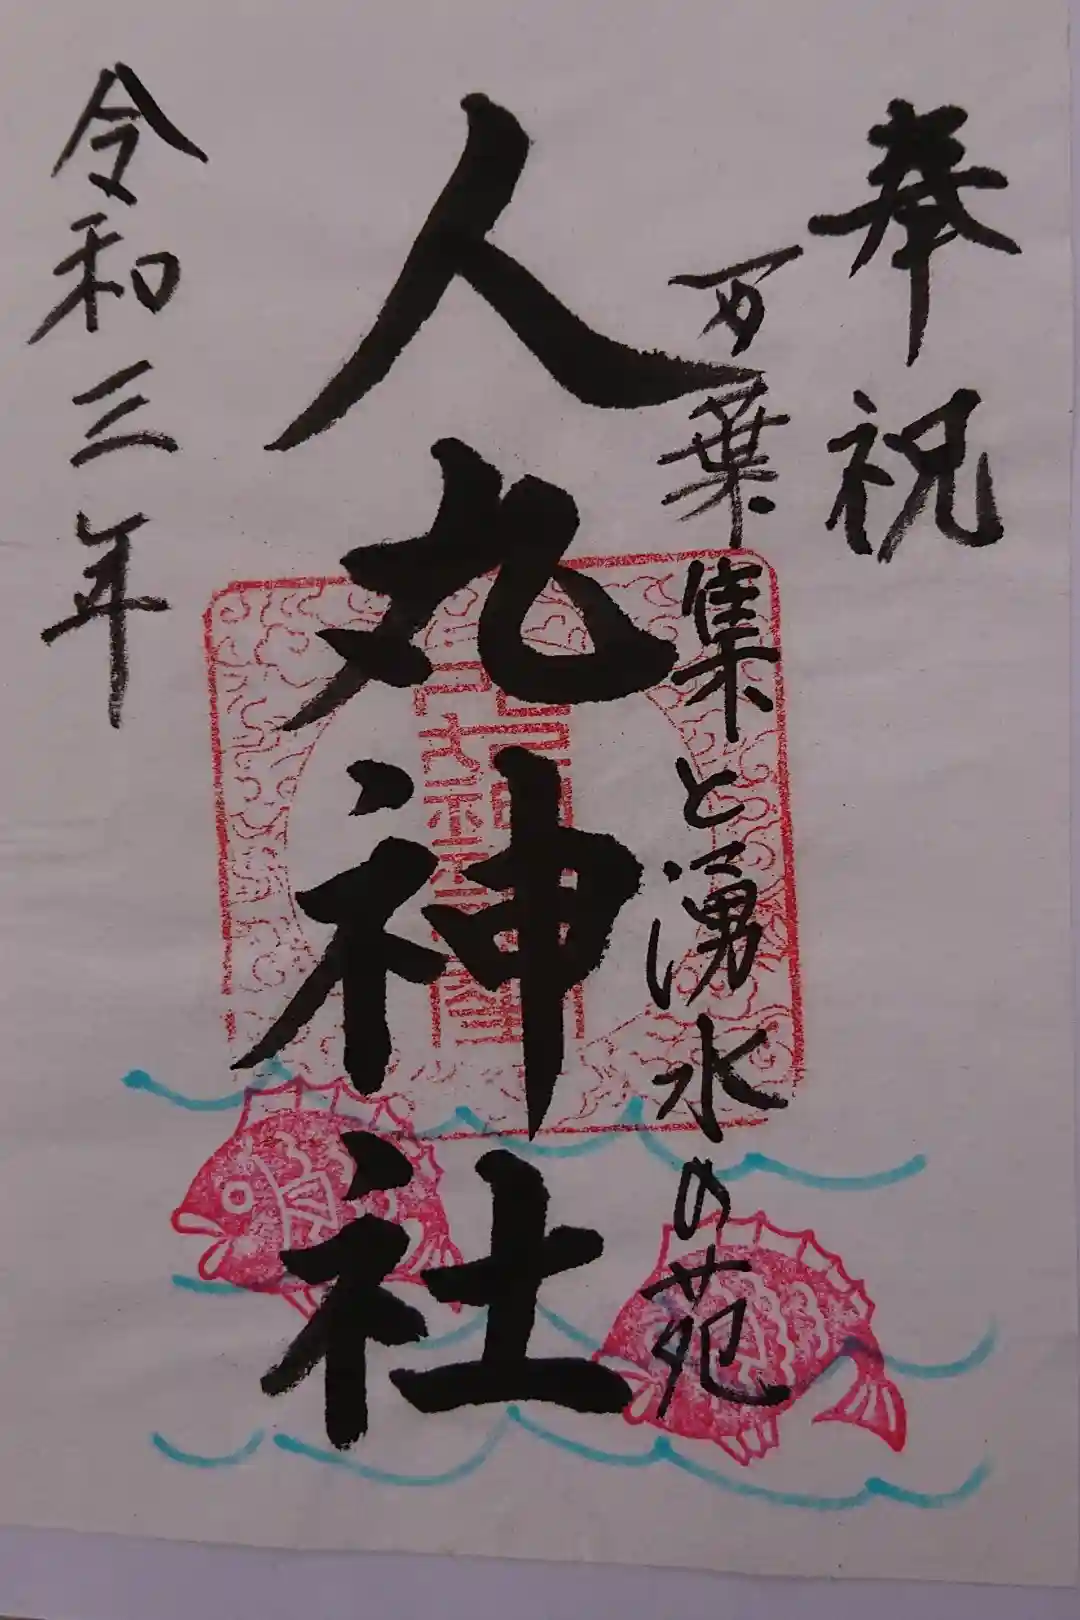 奉祝
万葉集と湧水の苑
人丸神社
令和三年